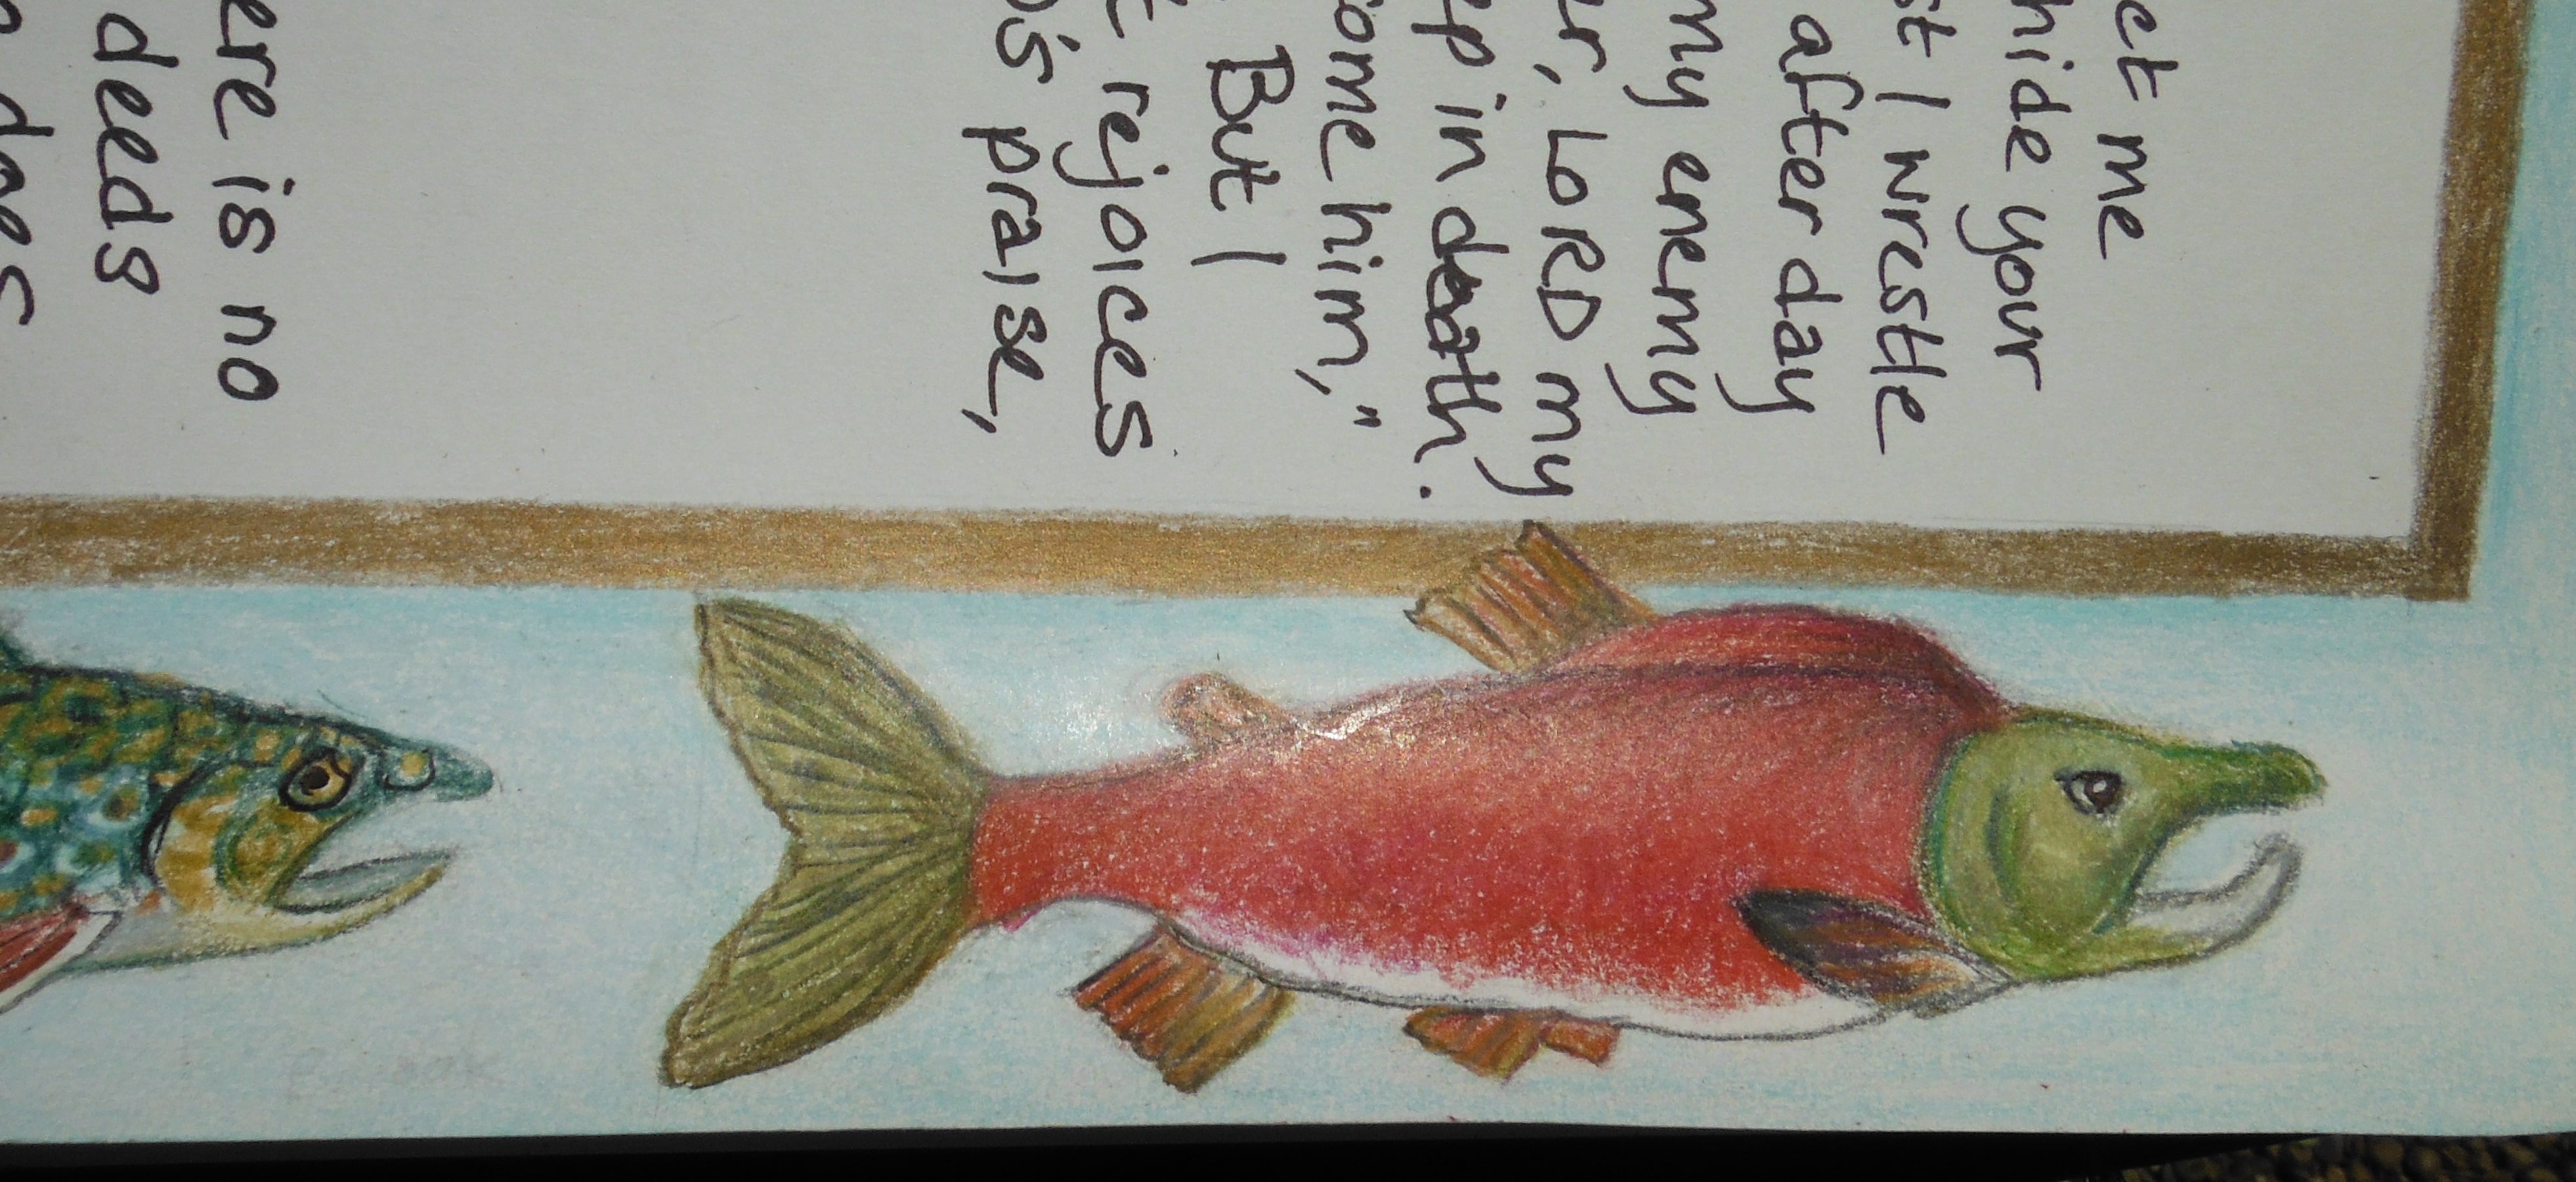 et me
hide your
st I wrestle
after day
my enemy
er, LORD my
ep in death.
come him,"
But I
t rejoices
D's praise,
ere is no
deeds
does